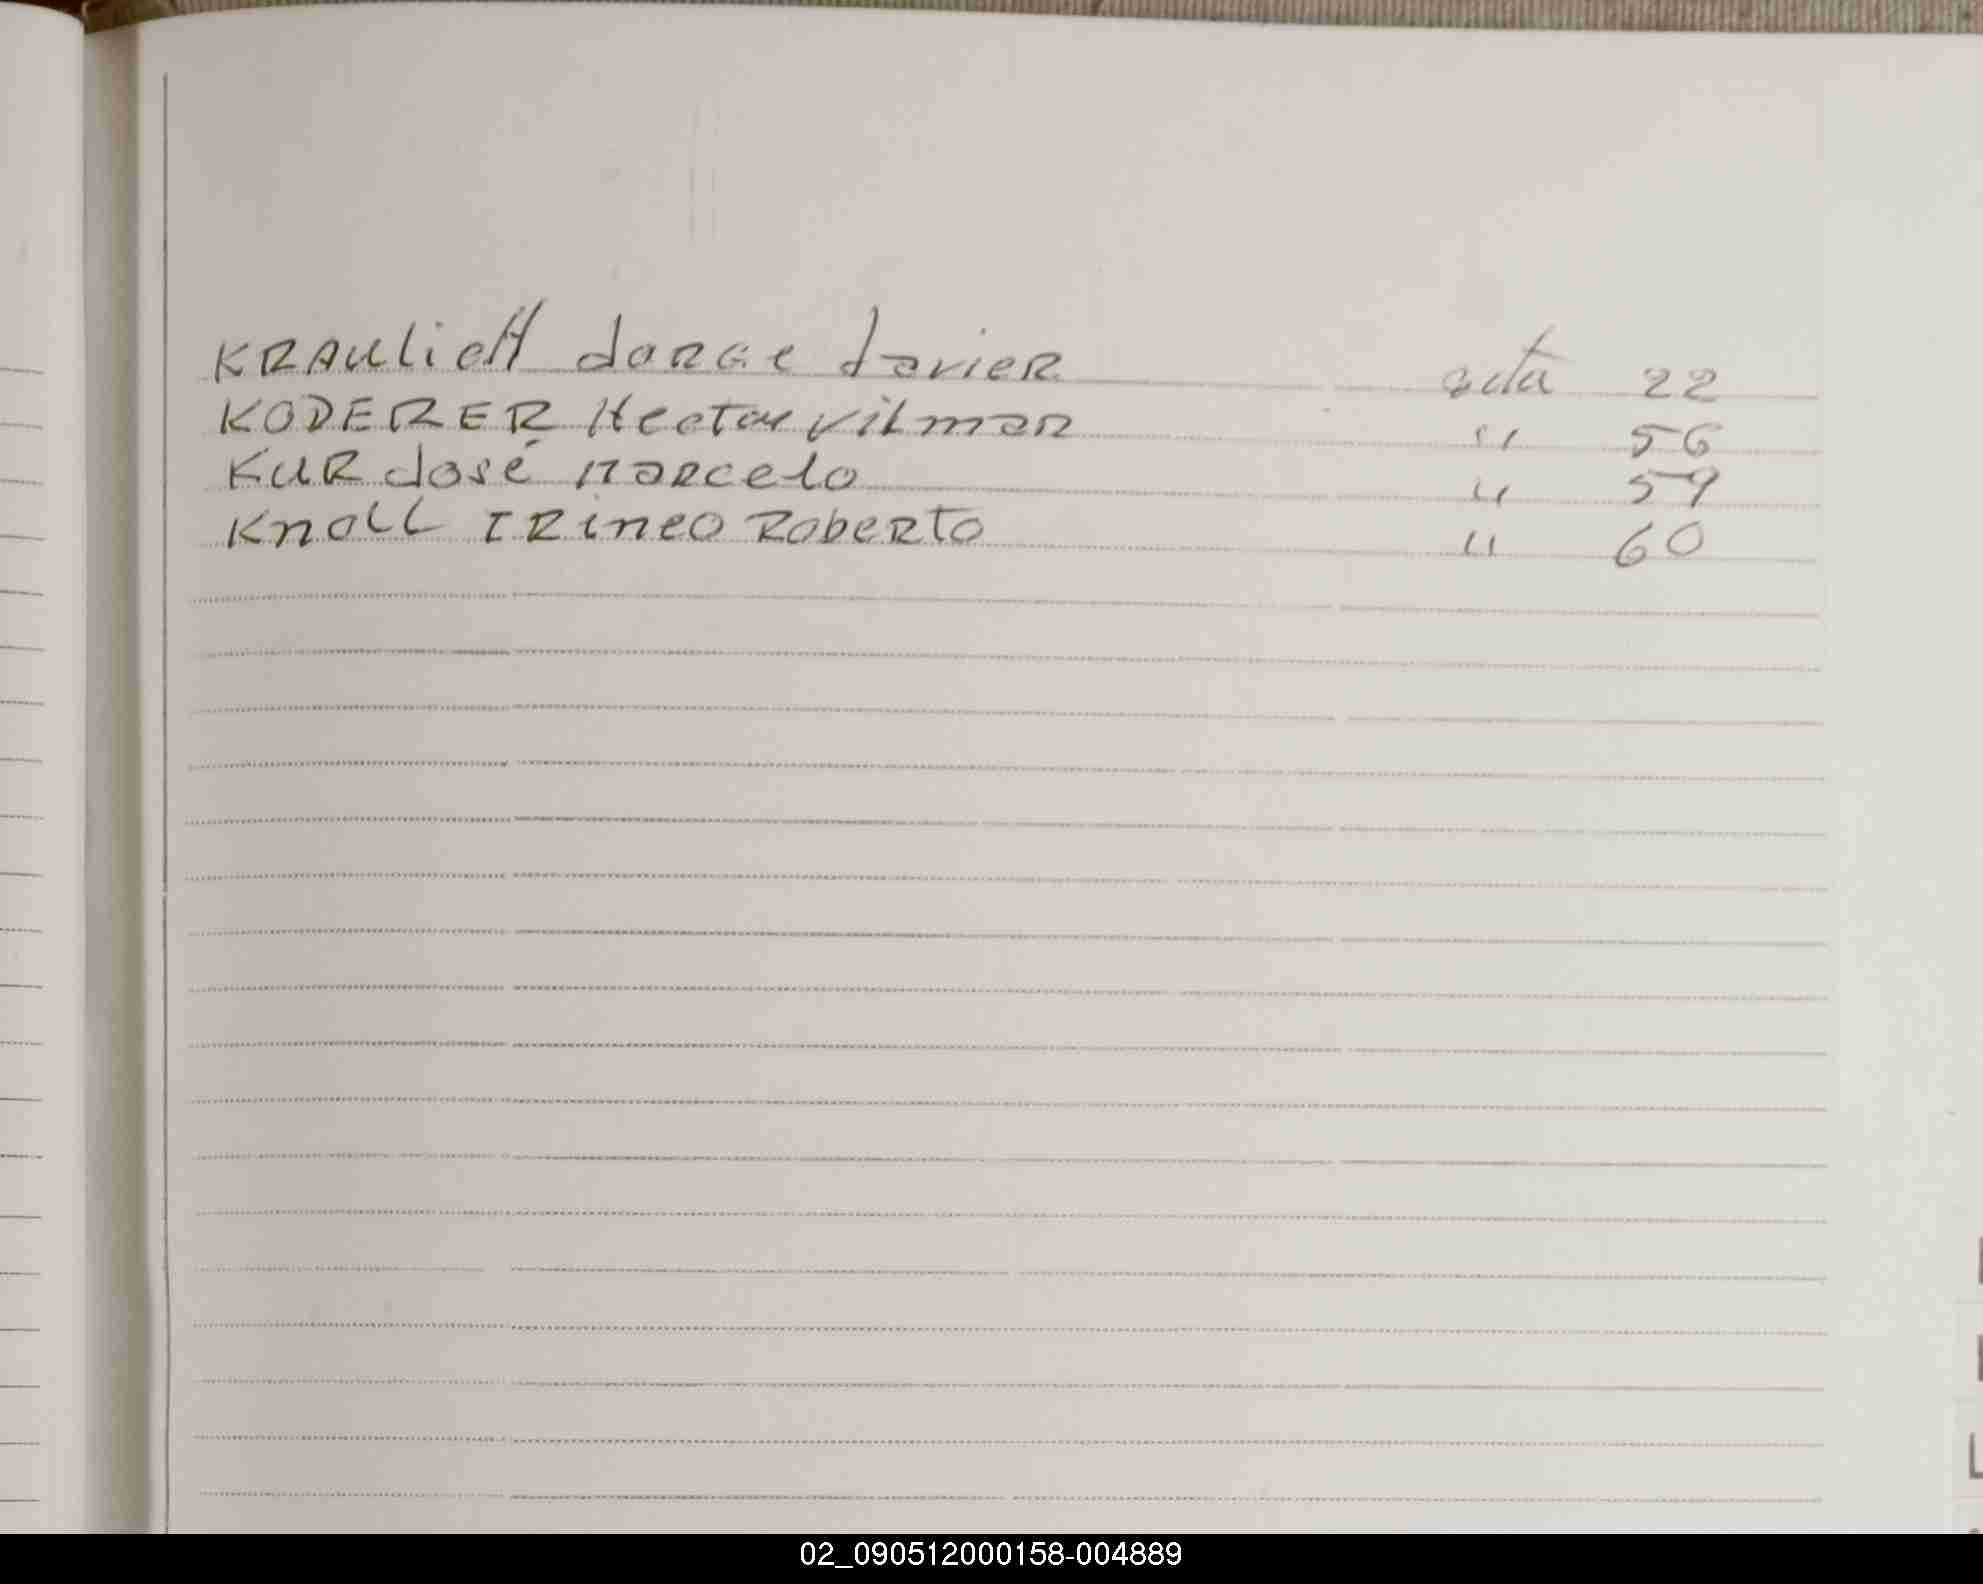 KRAULICH JORGE Javier acta 22
KODERER Hector Vilmar " 56
KUR José Marcelo " 59
Knoll IRineo Roberto " 60
02_090512000158-004889